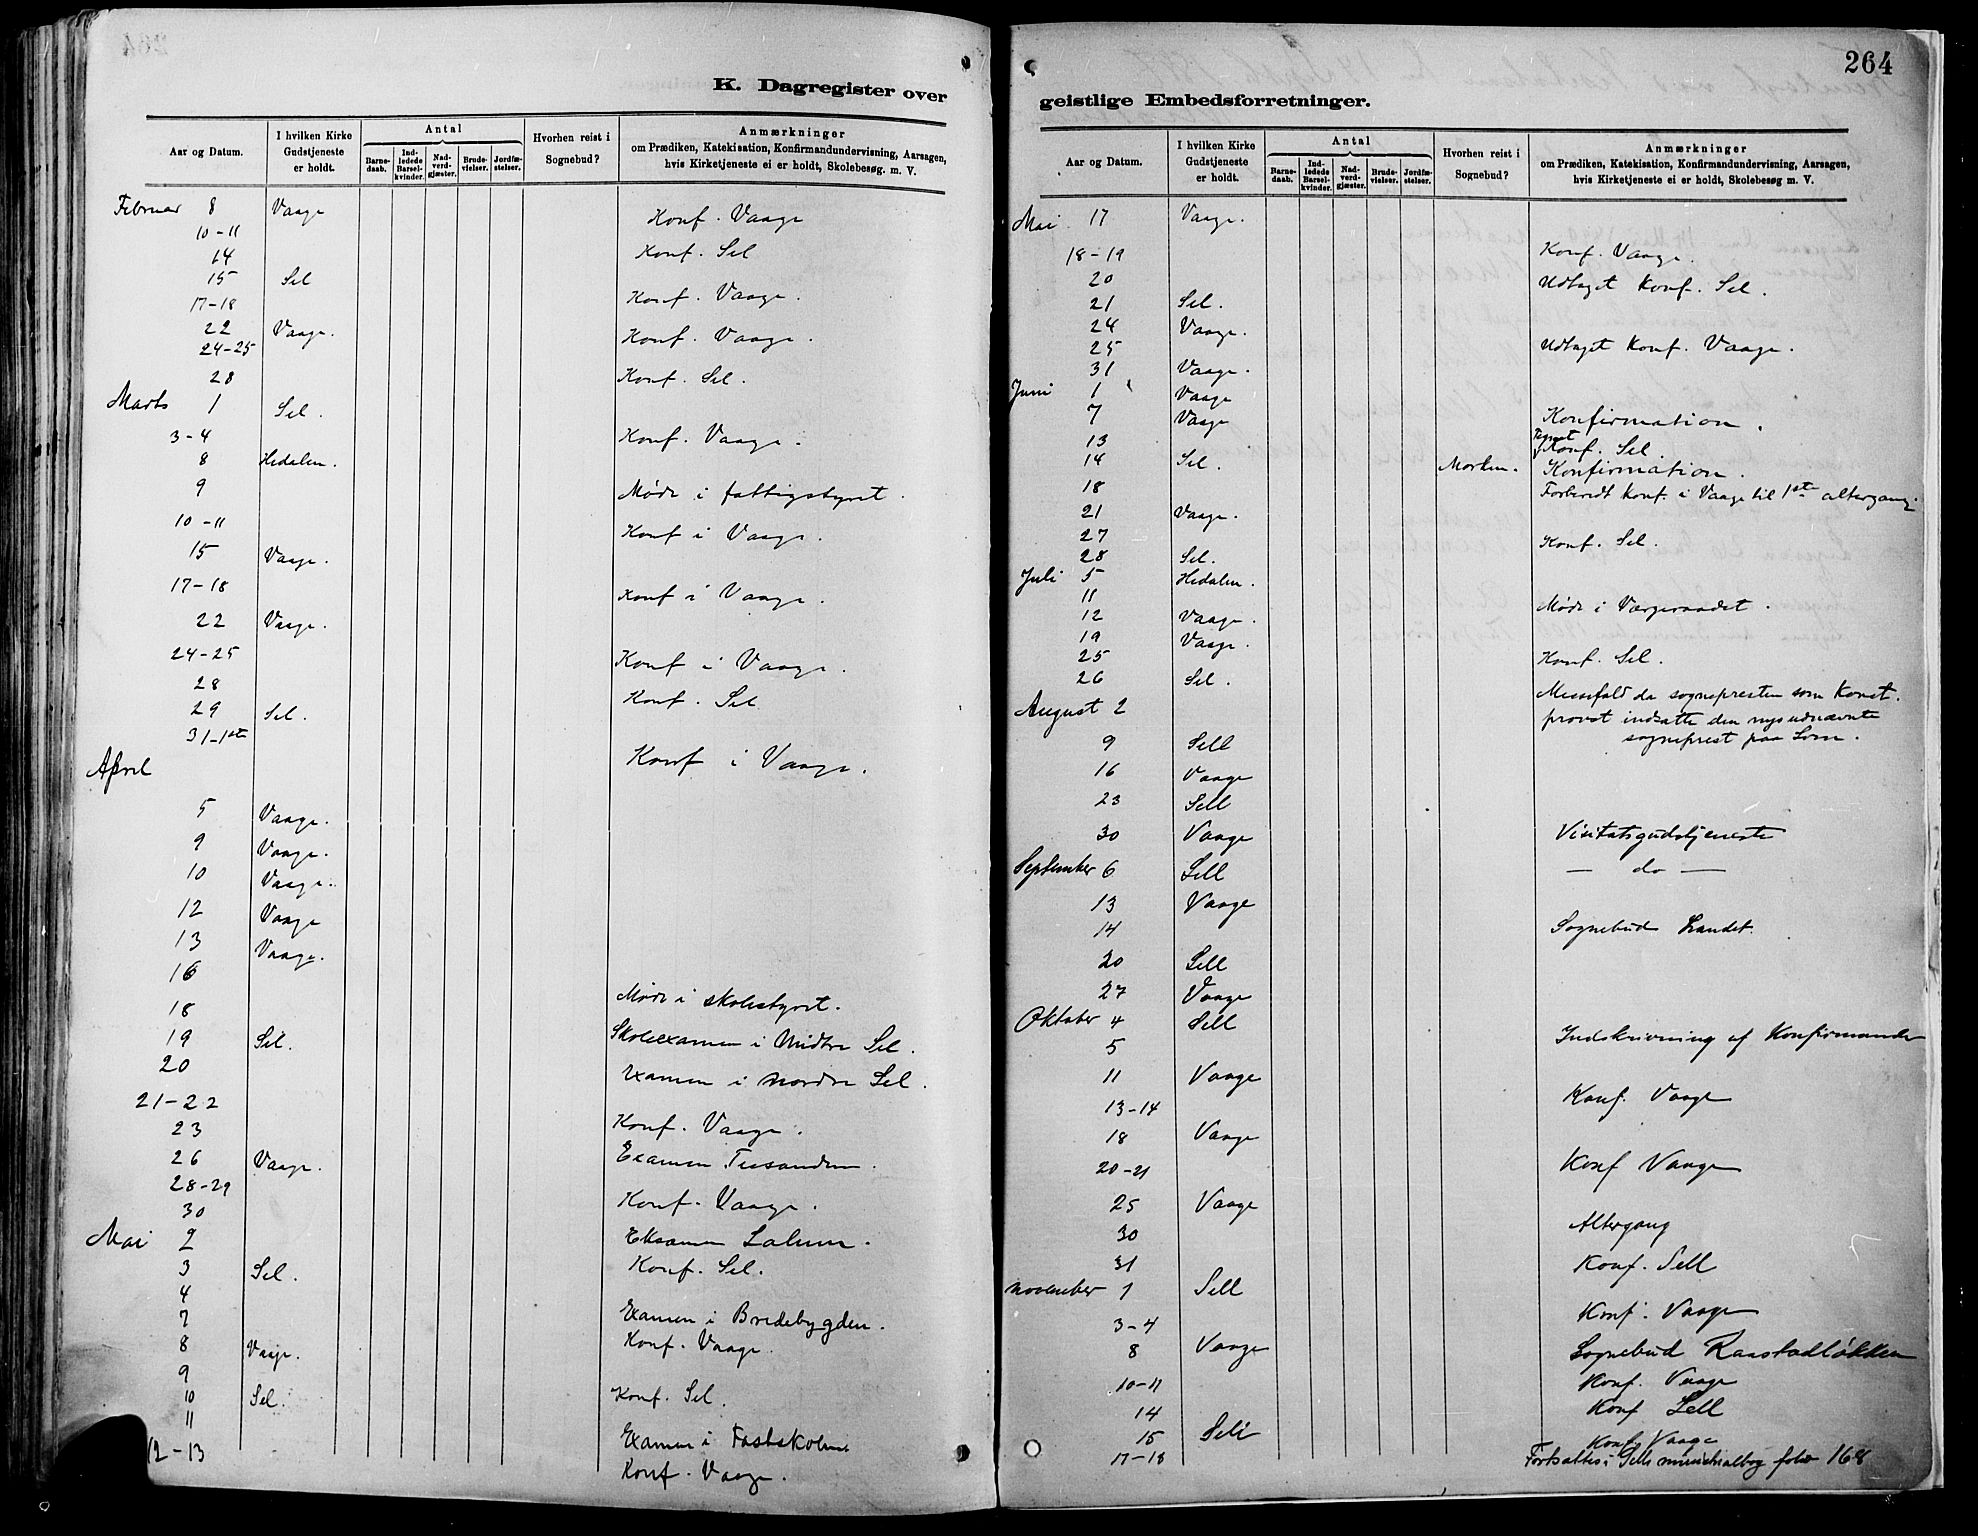 K. Dagregister over
Aar og Datum. I hvilken Kirke Gudstjeneste er holdt. Antal Barnedaab. Indledede Barselkvinder. Nadverdgjæster. Brudevielser. Jordfæstelser. Hvorhen reist i Sognebud? Anmærkninger om Prædiken, Katekisation, Konfirmandundervisning, Aarsagen, hvis Kirketjeneste ei er holdt, Skolebesøg. m. V.
Februar 8 Vaage
10-11 Konf. Vaage
14 Konf. Sel
15 Sel
17-18 Konf. Vaage.
22 Vaage.
24-25 Konf. Vaage.
28 Konf. Sel.
Marts 1 Sel.
3-4 Konf. Vaage.
8 Hedalen.
9 Møde i fattigstyret.
10-11 Konf i Vaage.
15 Vaage.
17-18 Konf i Vaage.
22 Vaage.
24-25 Konf i Vaage.
28 Konf. Sel
29 Sel.
31-1ste Konf i Vaage.
April
5 Vaage.
9 Vaage.
10 Vaage.
12 Vaage
13 Vaage.
16 Møde i skolestyret.
18 Skoleexamen i Midtre Sel.
19 Sel.
20 Examen i nordre Sel.
21-22 Konf. Vaage.
23 Examen Tesanden.
26 Vaage.
28-29 Konf. Vaage.
30 Eksamen Lalum.
Mai 2 Konf. Sel.
3 Sel.
4 Examen i Bredebygden.
7 Konf. Vaage.
8 Vaage.
9 Konf. Sel.
10 Sel.
11 Examen i Fastskolen
12-13 Konf. Vaage.
264
geistlige Embedsforretninger.
Aar og Datum. I hvilken Kirke Gudstjeneste er holdt. Antal Barnedaab. Indledede Barselkvinder. Nadverdgjæster. Brudevielser. Jordfæstelser. Hvorhen reist i Sognebud? Anmærkninger om Prædiken, Katekisation, Konfirmandundervisning, Aarsagen, hvis Kirketjeneste ei er holdt, Skolebesøg m. V.
Mai 17 Vaage.
18-19 Konf. Vaage.
20 Udtaget Konf. Sel.
21 Sel.
24 Vaage.
25 Udtaget Konf. Vaage.
31 Vaage.
Juni 1 Vaage
7 Vaage Konfirmation.
13 Konf. Sel.
14 Sel. Morken. Konfirmation.
18 Forberedt Konf. i Vaage til 1ste altergang.
21 Vaage.
27 Konf. Sel.
28 Sel.
Juli 5 Hedalen.
11 Møde i Værgeraadet.
12 Vaage.
19 Vaage.
25 Konf. Sel.
26 Sel.
August 2 Messefald da sognepresten som Konst.
provst indsatte den nysudnævnte
sogneprest paa Lom.
9 Sell
16 Vaage
23 Sell
30 Vaage Visitatsgudstjeneste
September 6 Sell — do —
13 Vaage
14 Sognebud Landet.
20 Sell
27 Vaage
Oktober 4 Sell
5 Indskrivning af Konfirmander
11 Vaage
13-14 Konf. Vaage
18 Vaage
20-21 Konf Vaage
25 Vaage
30 Altergang
31 Konf. Sell
November 1 Sell
3-4 Konf. Vaage
8 Vaage Sognebud Raastadløkken
10-11 Konf. Vaage
14 Konf Sell
15 Sell
17-18 Konf. Vaage
Fortsættes i Sells ministrialbog folio 168